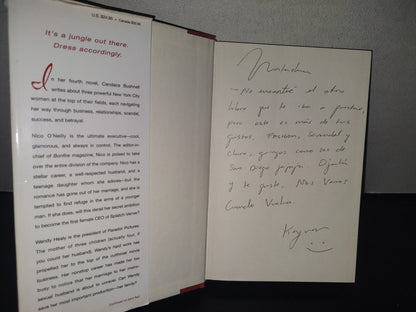 U.S. $24.95
It's a jungle out there.
Dress accordingly.
In her fourth novel, Candace Bushnell
writes about three powerful New York City
women at the top of their fields, each navigating
her way through business, relationships, scandal,
success, and betrayal.
Nico O'Neilly is the ultimate executive—cool,
glamorous, and always in control. The editor-in-
chief of Bonfire magazine, Nico is poised to take
over the entire division of the company. Nico has a
stellar career, a well-respected husband, and a
teenage daughter whom she adores—but the
romance has gone out of her marriage, and she is
tempted to find refuge in the arms of a younger
man. If she does, will this derail her secret ambition
to become the first female CEO of Splatch Verner?
Wendy Healy is the president of Parador Pictures.
The mother of three children (actually four, if
you count her husband), Wendy's hard work has
propelled her to the top of the cutthroat movie
business. Her nonstop career has made her too
busy to notice that her marriage to her metro-
sexual husband is about to unravel. Can Wendy
save her most important production—her family?
—No encontré el otro
libro que te iba a prestar,
pero este es más de tus
gustos. Fashion, Sensual y
claro, gringos como los de
San Diego jajaja. Ojalá
y te guste, Nos Vemos
Cuando Vuelva